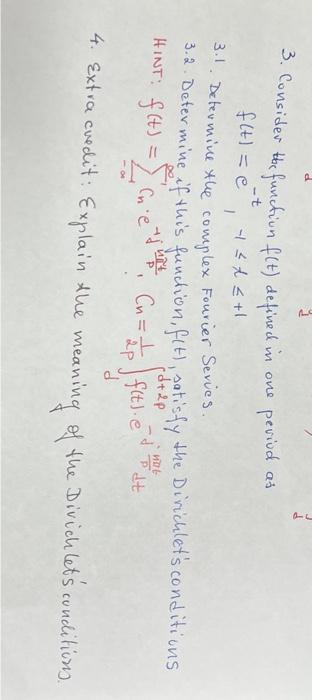 3. Consider the function f(t) defined in one period as
f(t) = e^-t , -1 ≤ t ≤ +1
3.1. Determine the complex Fourier Series.
3.2. Determine if this function, f(t), satisfy the Dirichlet's conditions
HINT: f(t) = ∑_{-∞}^{∞} Cn·e^{+j nπt/p} , Cn = 1/2p ∫_d^{d+2p} f(t)·e^{-j nπt/p} dt
4. Extra credit: Explain the meaning of the Dirichlet's conditions.